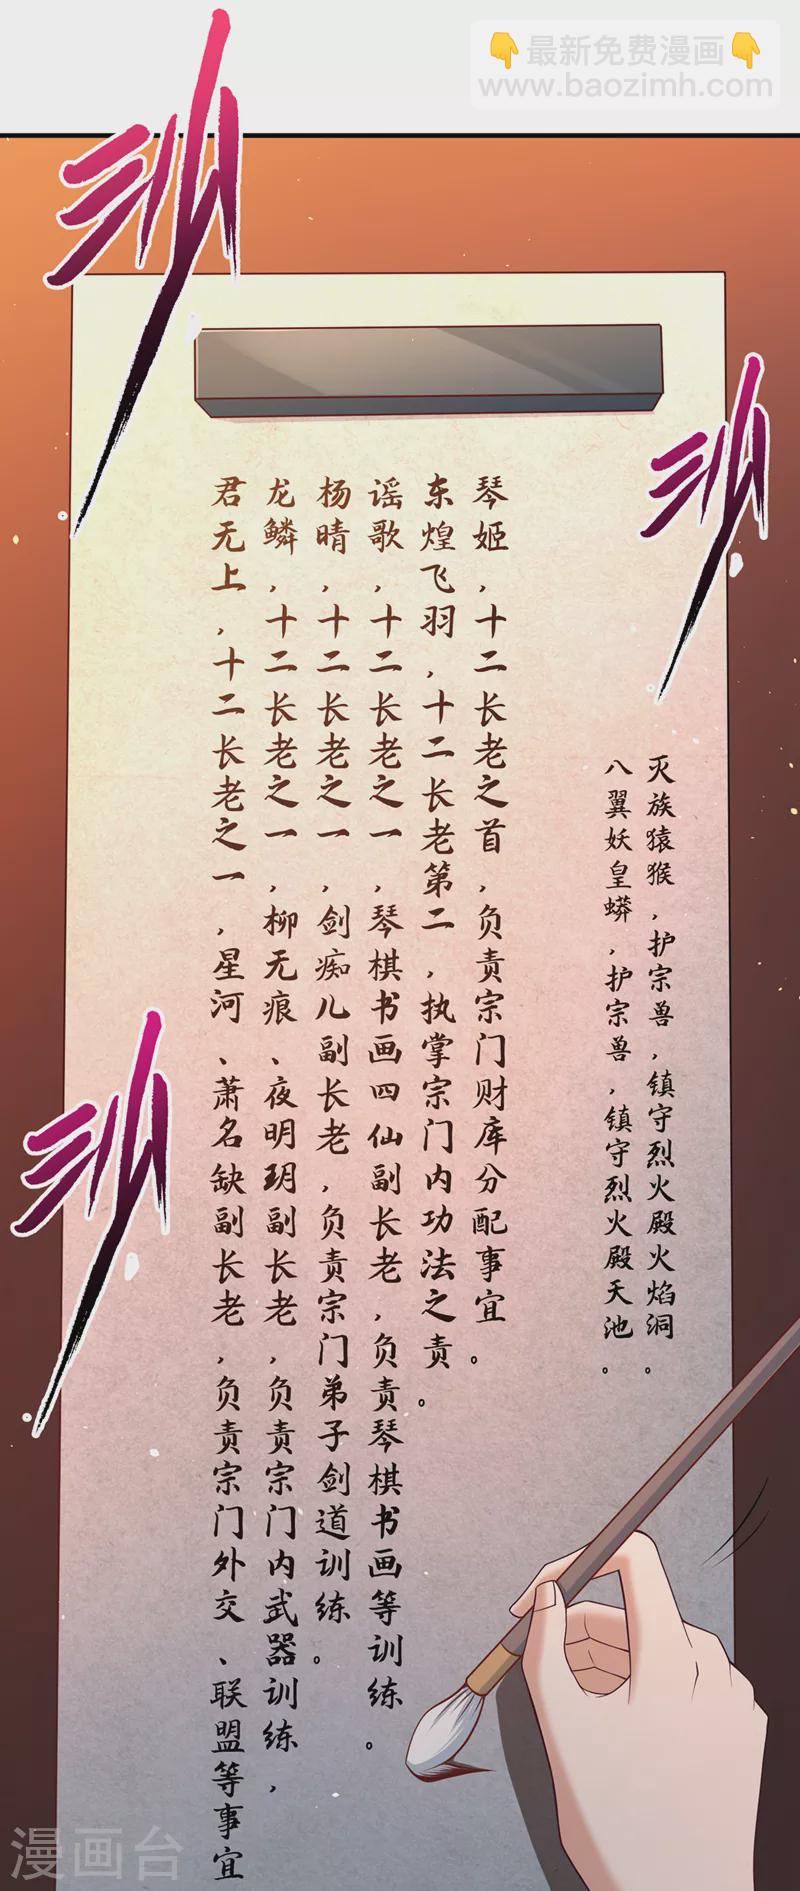 👇最新免费漫画👇
www.baozimh.com
沙
沙
沙
灭族猿猴，护宗兽，镇守烈火殿火焰洞。
八翼妖皇蟒，护宗兽，镇守烈火殿天池。
琴姬，十二长老之首，负责宗门财库分配事宜。
东煌飞羽，十二长老第二，执掌宗门内功法之责。
谣歌，十二长老之一，琴棋书画四仙副长老，负责琴棋书画等训练。
杨晴，十二长老之一，剑痴儿副长老，负责宗门弟子剑道训练。
龙鳞，十二长老之一，柳无痕、夜明玥副长老，负责宗门内武器训练，
君无上，十二长老之一，星河、萧名缺副长老，负责宗门外交、联盟等事宜
漫画台